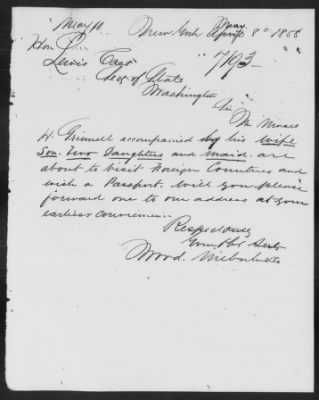 May 10
New York May 8th 1858
April
Hon.
Lewis Cass
7193
Secy of State
Washington
Sir
Mr Moses
H. Grinnell accompanied by his wife
Son, Two Daughters and maid are
about to visit Foreign Countries and
wish a Passport. Will you please
forward one to our address at your
earliest convenience.
Respectfully
Your Obt Servts
Wood.